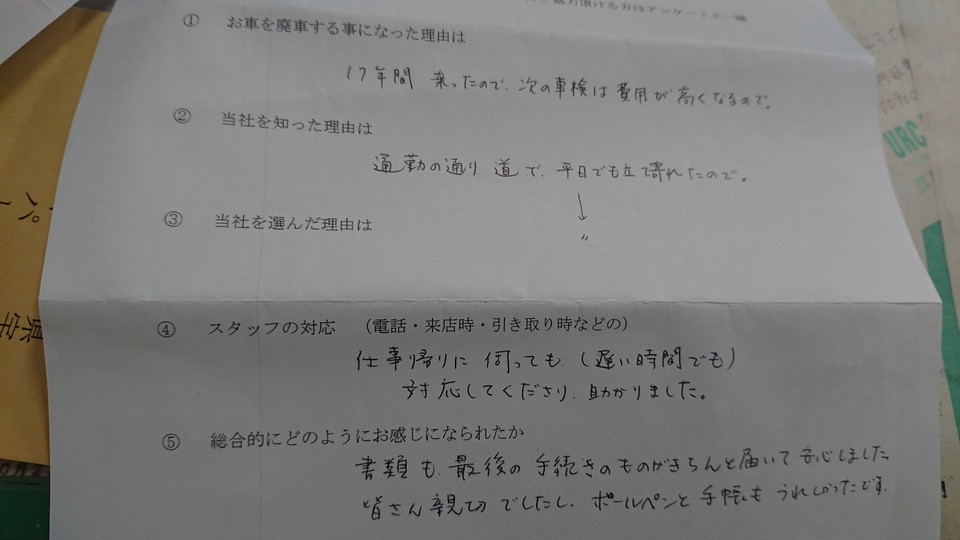 協力頂ける方はアンケートと一緒
① お車を廃車する事になった理由は
17年間 乗ったので、次の車検は費用が高くなるので。
② 当社を知った理由は
通勤の通り道で、平日でも立て寄れたので。
↓
③ 当社を選んだ理由は 〃
④ スタッフの対応 (電話・来店時・引き取り時などの)
仕事帰りに伺っても(遅い時間でも)
対応してくださり、助かりました。
⑤ 総合的にどのようにお感じになられたか
書類も最後の手続きのものがきちんと届いて安心しました
皆さん親切でしたし、ボールペンと手帳もうれしかったです。
URC